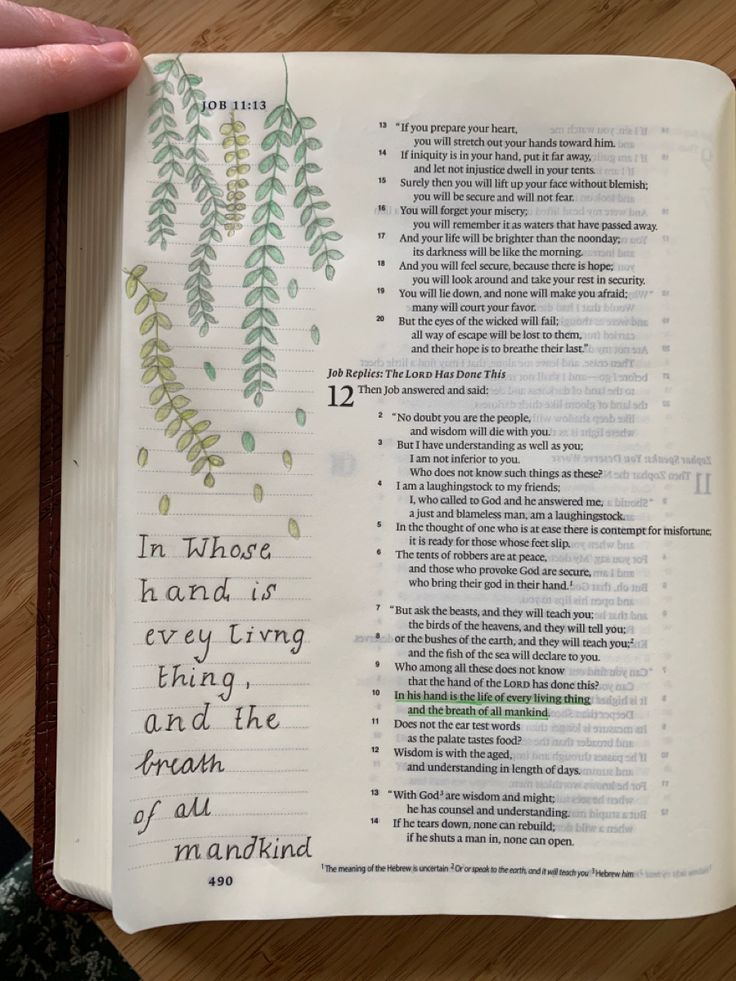 JOB 11:13
13 "If you prepare your heart,
you will stretch out your hands toward him.
14 If iniquity is in your hand, put it far away,
and let not injustice dwell in your tents.
15 Surely then you will lift up your face without blemish;
you will be secure and will not fear.
16 You will forget your misery;
you will remember it as waters that have passed away.
17 And your life will be brighter than the noonday;
its darkness will be like the morning.
18 And you will feel secure, because there is hope;
you will look around and take your rest in security.
19 You will lie down, and none will make you afraid;
many will court your favor.
20 But the eyes of the wicked will fail;
all way of escape will be lost to them,
and their hope is to breathe their last."
Job Replies: The LORD Has Done This
12 Then Job answered and said:
2 "No doubt you are the people,
and wisdom will die with you.
3 But I have understanding as well as you;
I am not inferior to you.
Who does not know such things as these?
4 I am a laughingstock to my friends;
I, who called to God and he answered me,
a just and blameless man, am a laughingstock.
5 In the thought of one who is at ease there is contempt for misfortune;
it is ready for those whose feet slip.
6 The tents of robbers are at peace,
and those who provoke God are secure,
who bring their god in their hand.1
7 "But ask the beasts, and they will teach you;
the birds of the heavens, and they will tell you;
8 or the bushes of the earth, and they will teach you;2
and the fish of the sea will declare to you.
9 Who among all these does not know
that the hand of the LORD has done this?
10 In his hand is the life of every living thing
and the breath of all mankind.
11 Does not the ear test words
as the palate tastes food?
12 Wisdom is with the aged,
and understanding in length of days.
13 "With God3 are wisdom and might;
he has counsel and understanding.
14 If he tears down, none can rebuild;
if he shuts a man in, none can open.
1 The meaning of the Hebrew is uncertain 2 Or or speak to the earth, and it will teach you 3 Hebrew him
In Whose
hand is
evey livng
thing,
and the
breath
of all
mandkind
490